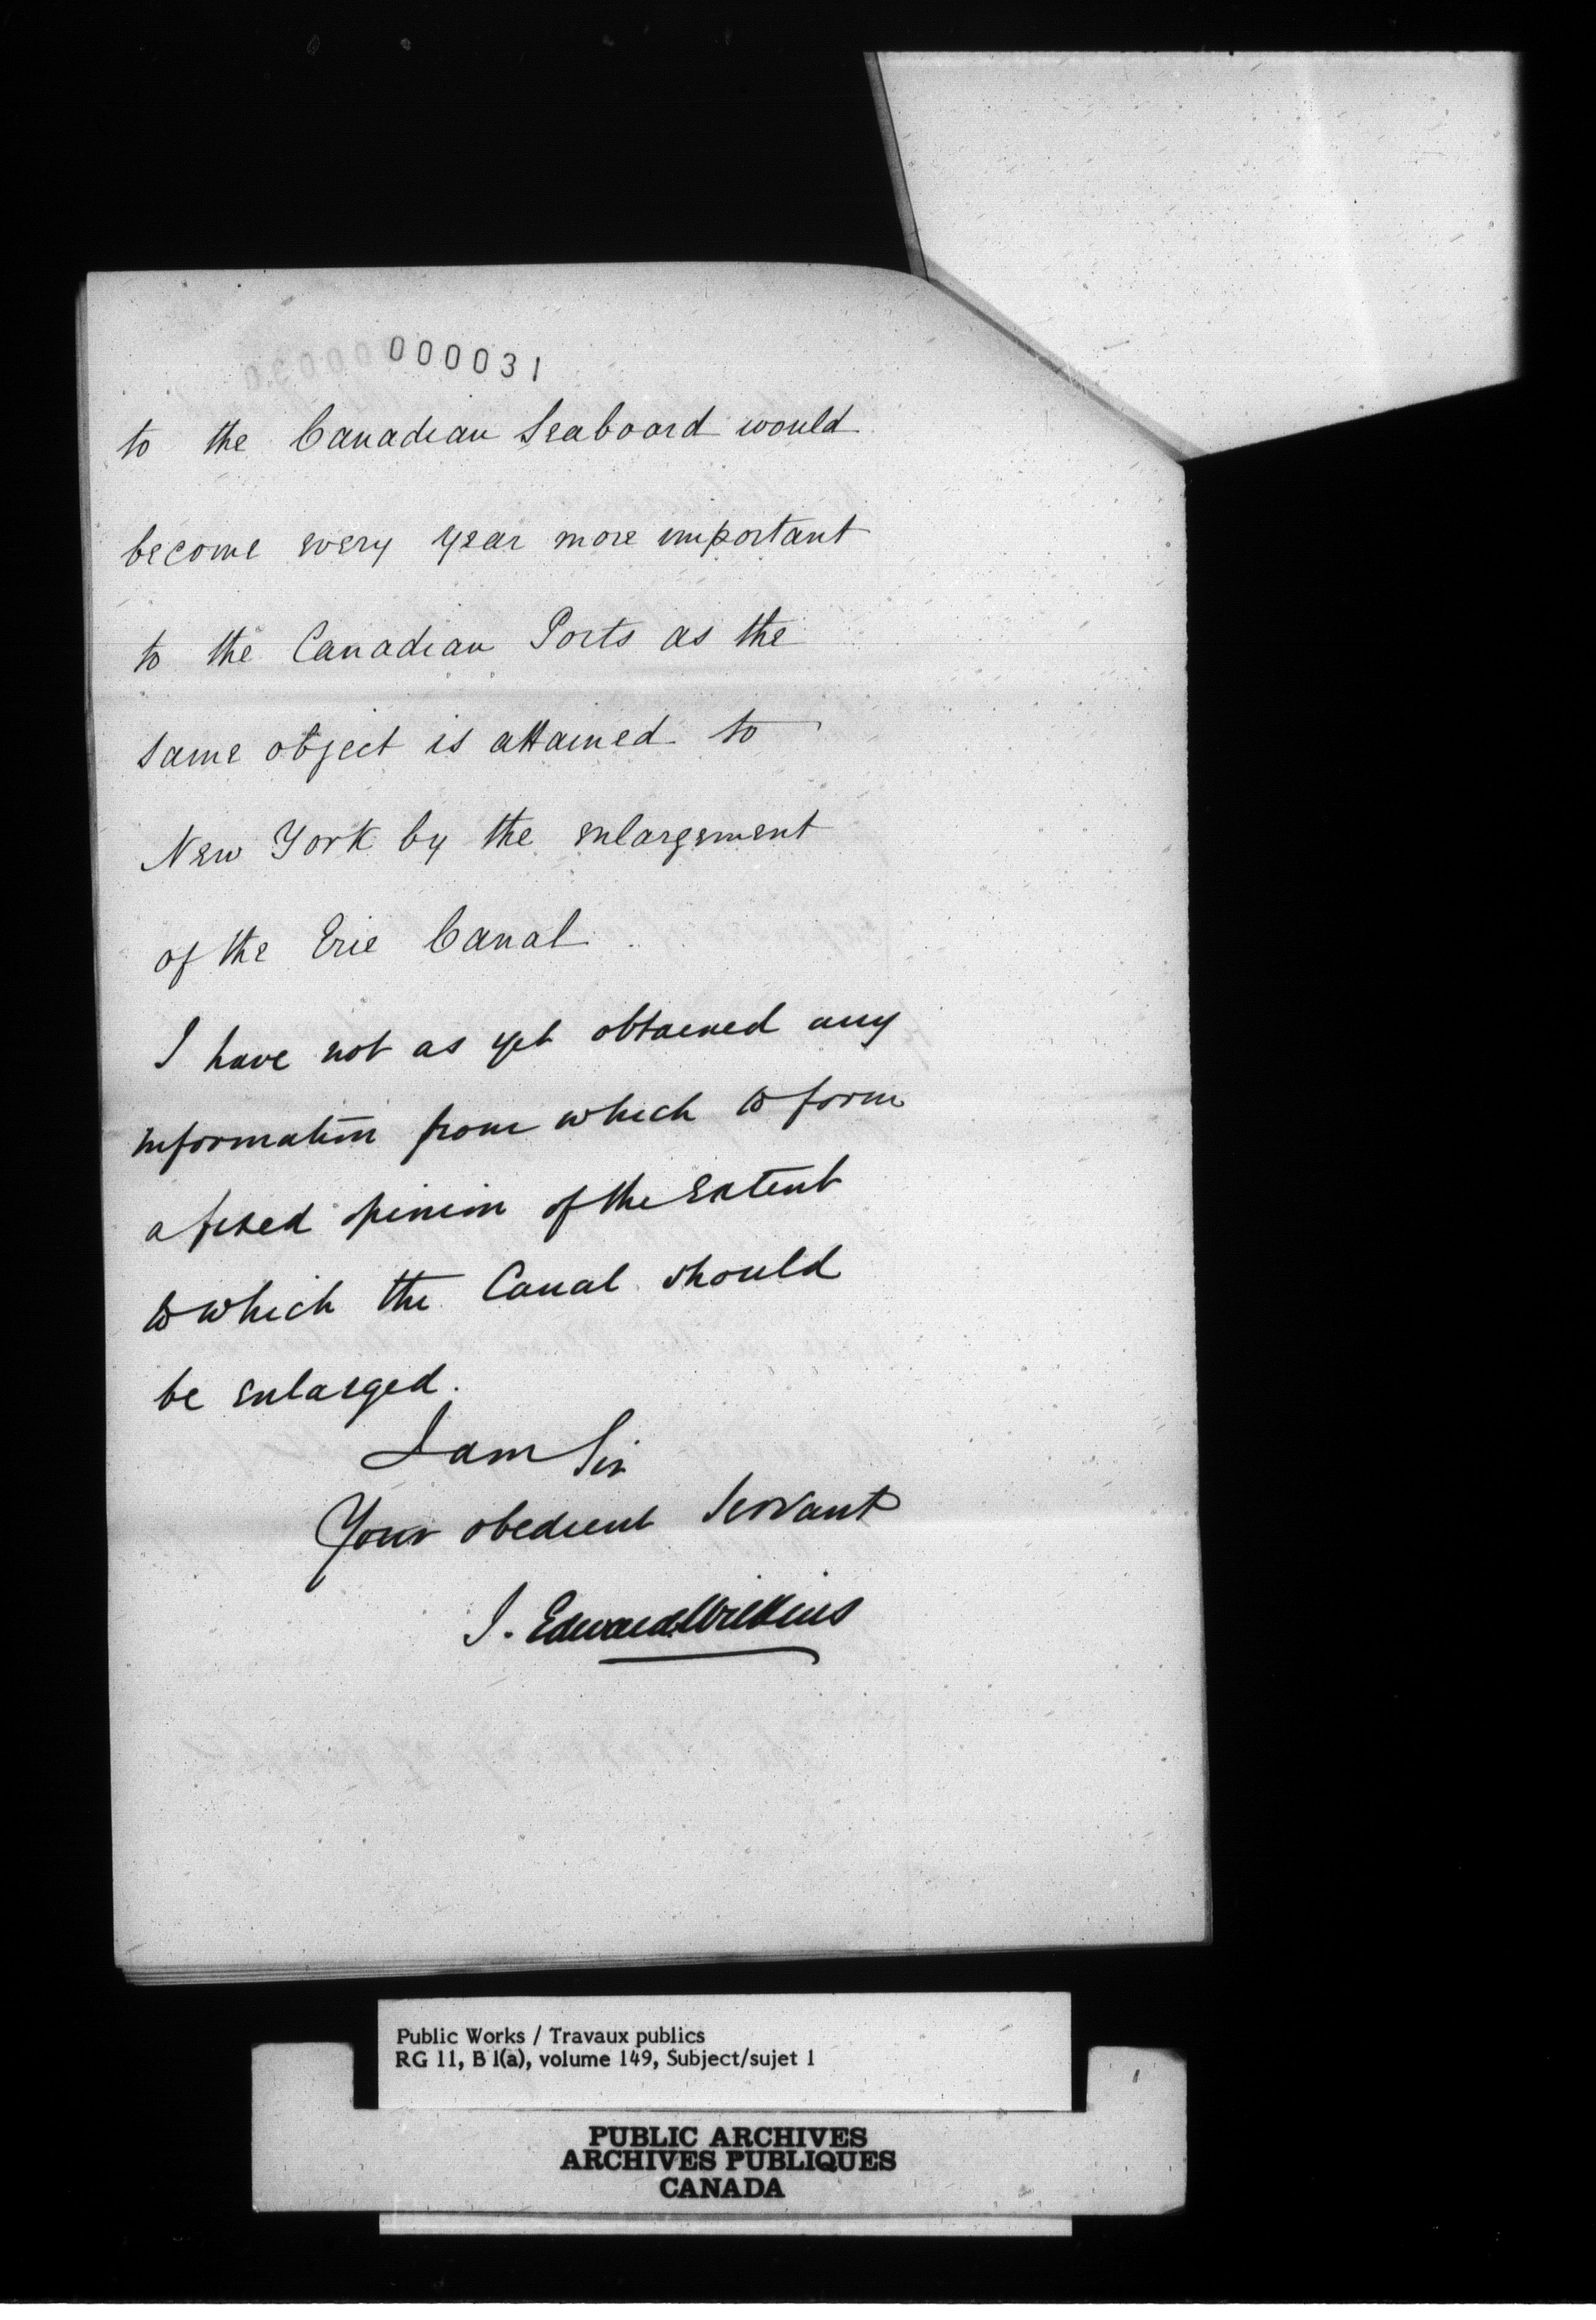 000031
to the Canadian Seaboard would
become every year more important
to the Canadian Ports as the
same object is attained to
New York by the enlargement
of the Erie Canal
I have not as yet obtained any
information from which to form
a fixed opinion of the extent
to which the Canal should
be enlarged.
I am Sir
Your obedient Servant
J. Edward Wilkins
Public Works / Travaux publics
RG 11, B 1(a), volume 149, Subject/sujet 1
PUBLIC ARCHIVES
ARCHIVES PUBLIQUES
CANADA